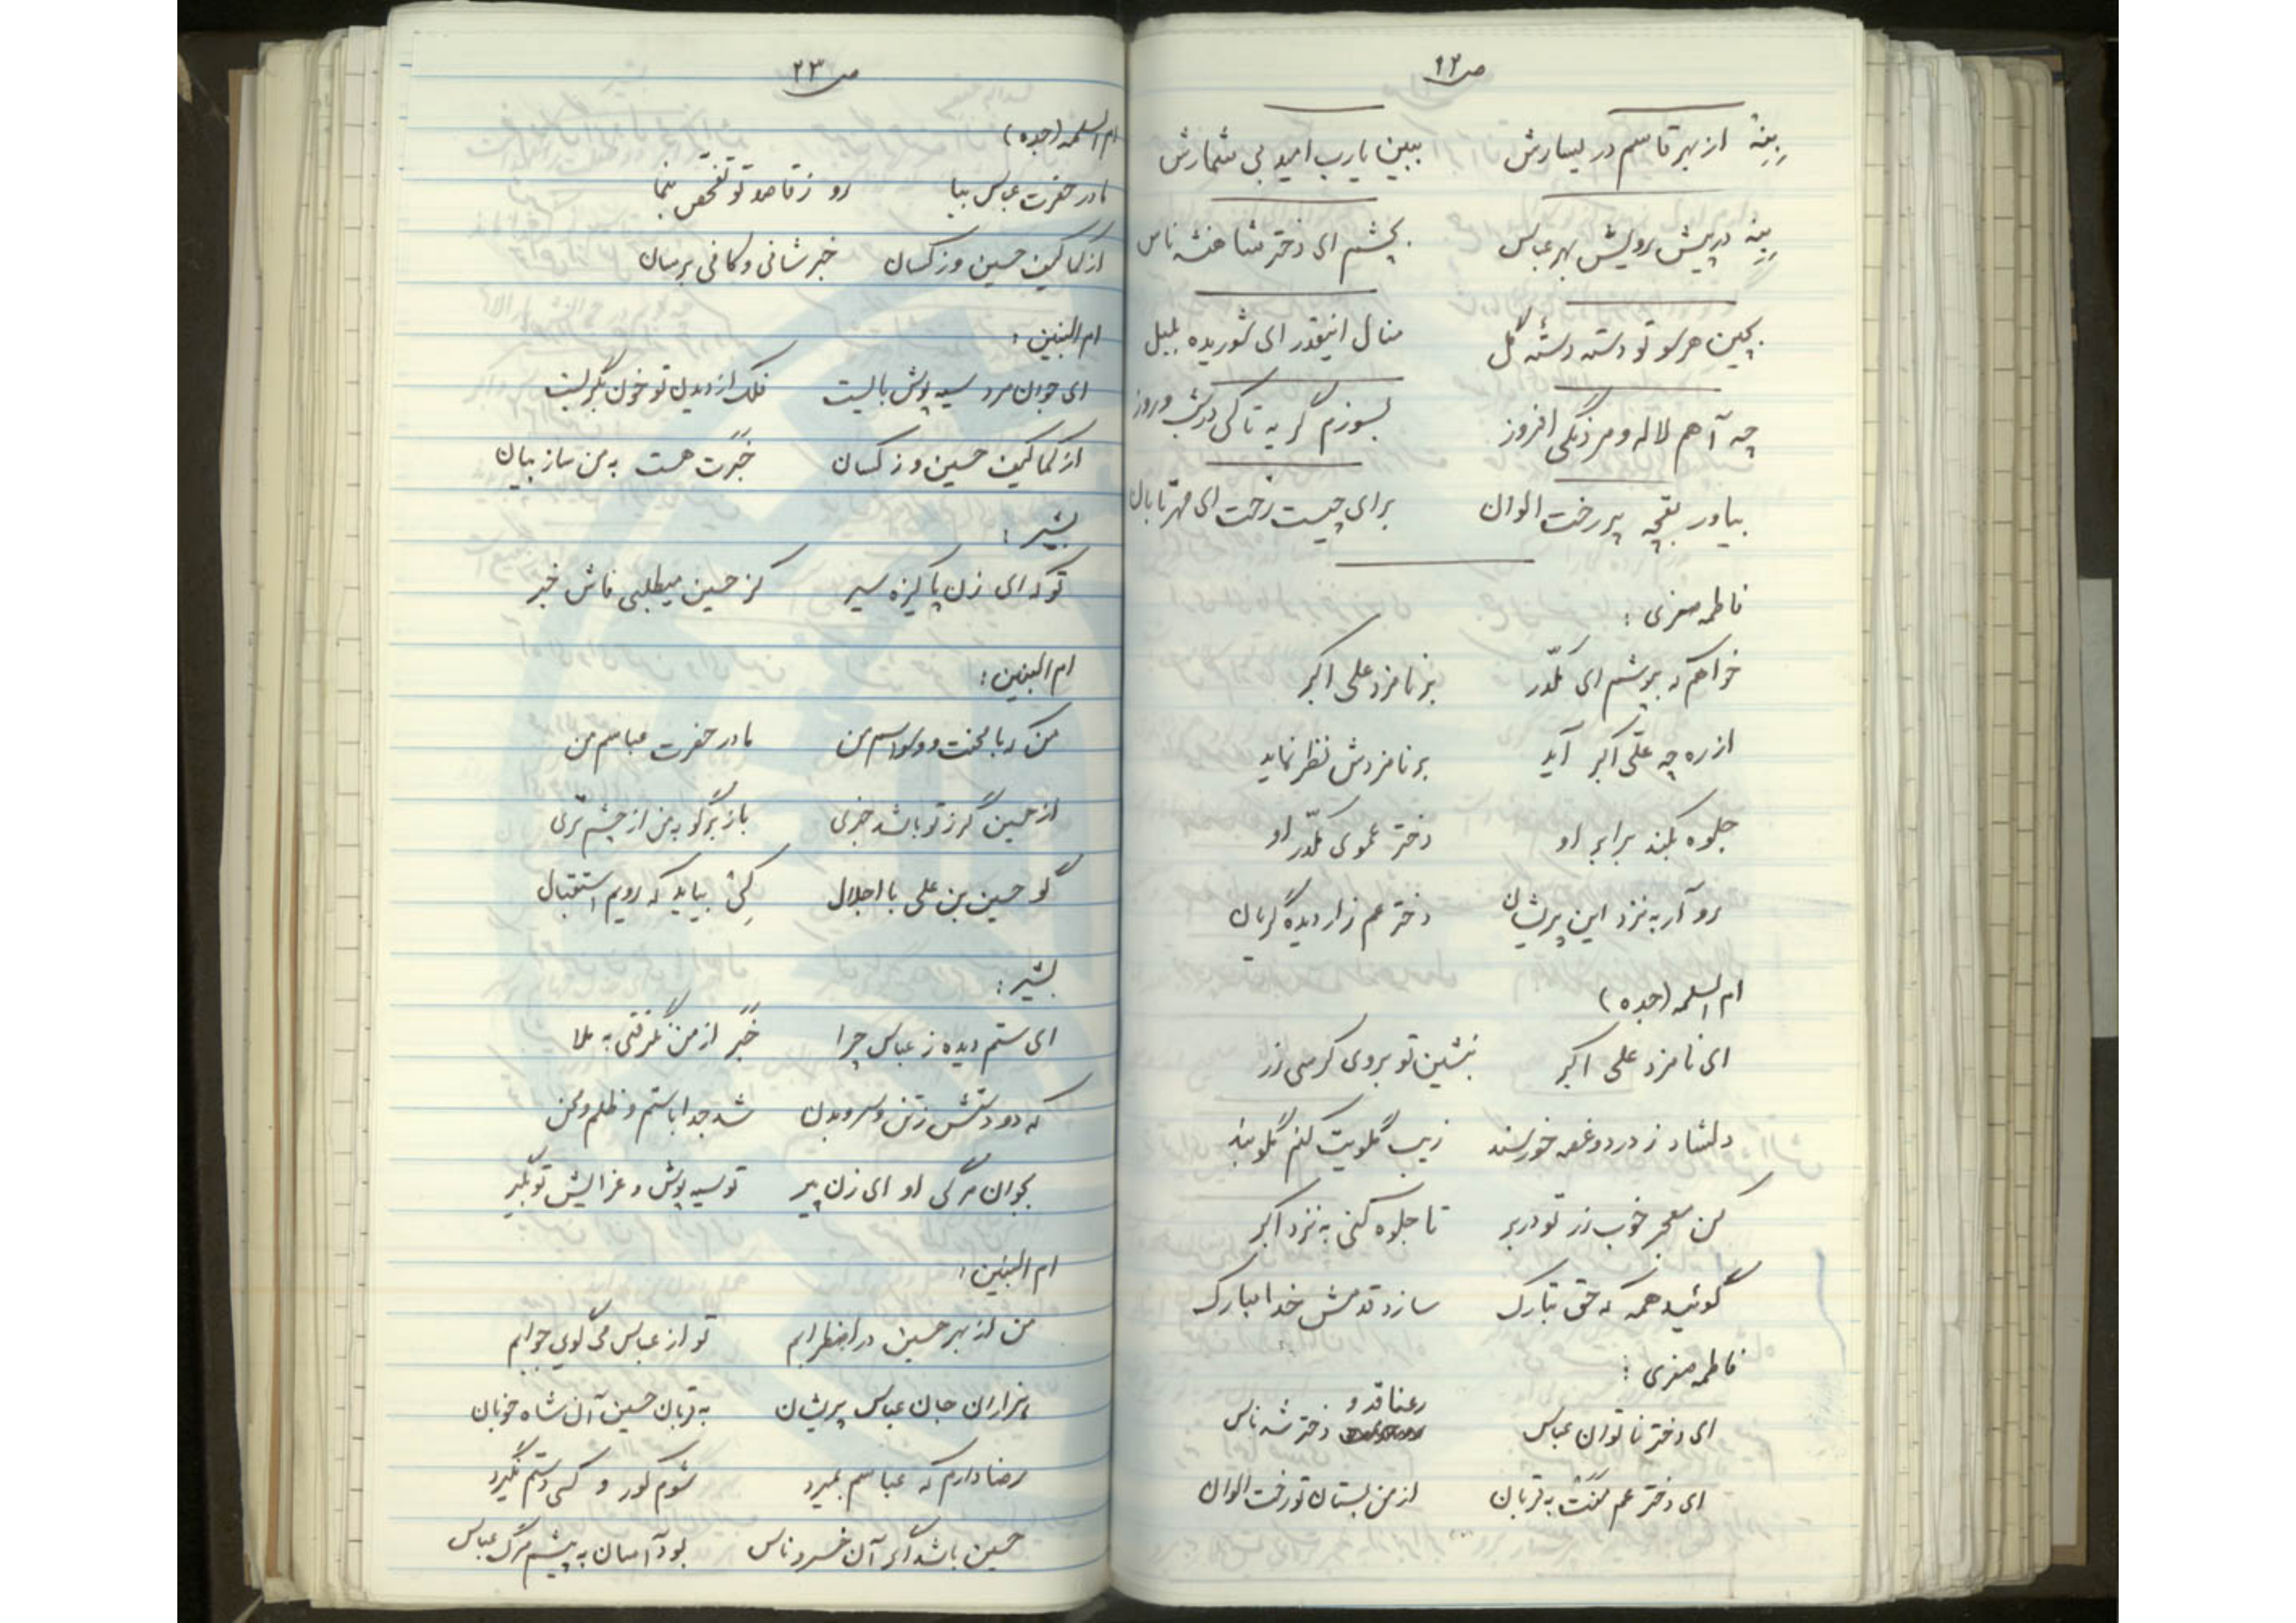 ص ۱۲
بِنِه از بهر قاسم در یسارش ببین یا رب امید بی شمارش
بِنِه در پیش رویش بهر عباس بچشم ای دختر شاهنشه ناس
بچین هر سو تو دسته دستۀ گل منال اینقدر ای شوریده بلبل
چه آهم لاله و مردنگی افروز بسوزم گریه تا کی در شب و روز
بیاور بقچه پر رخت الوان برای چیست رخت ای مهر تابان
فاطمه صغری :
خواهم که بپوشم ای مکدّر بر نامزد علی اکبر
از ره چه علّی اکبر آید بر نامزدش نظر نماید
جلوه بکند برابر او دختر عموی مکدّر او
رو آر به نزد این پریشان دختر عم زار دیده گریان
ام السلمه (جده)
ای نامزد علی اکبر بنشین تو بروی کرسی زر
دلشاد ز درد و غصه خورسند زیب گلویت کنم گلوبند
کن معجر خوب زر تو در بر تا جلوه کنی به نزد اکبر
گوئید همه که حق تبارک سازد قدمش خدا مبارک
فاطمه صغری :
رعنا قد و
ای دختر ناتوان عباس دختر شه ناس
ای دختر عم منت به قربان از من بستان تو رخت الوان
ص ۲۳
ام السلمه (جده)
مادر حضرت عباس بیا رو ز قاصد تو تفحص بنما
از کماکیف حسین وز کسان خبر شافی و کافی برسان
ام البنین :
ای جوان مرد سیه پوش بالیت فلک از دیدن تو خون بگریست
از کماکیف حسین وز کسان خبرت هست به من ساز بیان
بشیر :
تو که ای زن پاکیزه سیر کز حسین میطلبی فاش خبر
ام البنین :
من که با محنت و وسواسم من مادر حضرت عباسم من
از حسین گر ز تو باشد خبری باز برگو به من از چشم تری
گو حسین بن علی با اجلال کِی بیاید که رویم استقبال
بشیر :
ای ستم دیده ز عباس چرا خبر از من نگرفتی به ملا
که دو دستش ز تن و سر و بدن شد جدا با ستم و ظلم و محن
بجوان مرگی او ای زن پیر تو سیه پوش و عزایش تو بگیر
ام البنین :
من از بهر حسین در اضطرابم تو از عباس می گویی جوابم
هزاران جان عباس پریشان به قربان حسین آن شاه خوبان
رضا دارم که عباسم بمیرد شوم کور و کسی دستم نگیرد
حسین باشد اگر آن خسرو ناس بود آسان به پیشم مرگ عباس